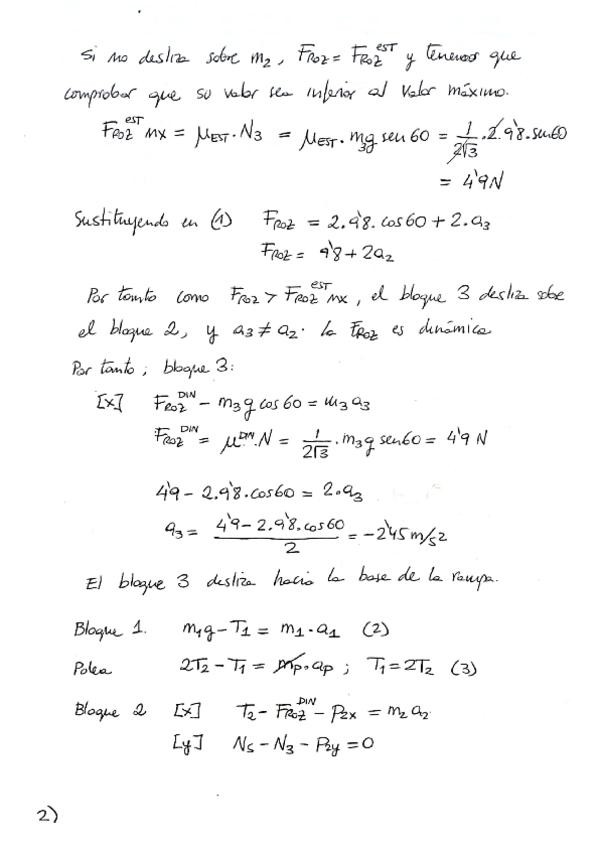 Si no desliza sobre m₂, F_ROZ = F_ROZ^EST y tenemos que
comprobar que su valor sea inferior al valor máximo.
F_ROZ^EST MX = μ_EST · N₃ = μ_EST · m₃g sen 60 = 1/(2√3) · 2 · 9'8 · sen 60
= 4'9 N
Sustituyendo en (1) F_ROZ = 2 · 9'8 · cos 60 + 2 · a₃
F_ROZ = 9'8 + 2a₂
Por tanto como F_ROZ > F_ROZ^EST MX, el bloque 3 desliza sobre
el bloque 2, y a₃ ≠ a₂. La F_ROZ es dinámica
Por tanto; bloque 3:
[x] F_ROZ^DIN - m₃ g cos 60 = m₃ a₃
F_ROZ^DIN = μ^DIN · N = 1/(2√3) · m₃g sen 60 = 4'9 N
4'9 - 2 · 9'8 · cos 60 = 2 · a₃
a₃ = (4'9 - 2 · 9'8 · cos 60)/2 = -2'45 m/s²
El bloque 3 desliza hacia la base de la rampa.
Bloque 1. m₁g - T₁ = m₁ · a₁ (2)
Polea 2T₂ - T₁ = m_p · a_p ; T₁ = 2T₂ (3)
Bloque 2 [x] T₂ - F_ROZ^DIN - P₂x = m₂ a₂
[y] N₅ - N₃ - P₂y = 0
2)